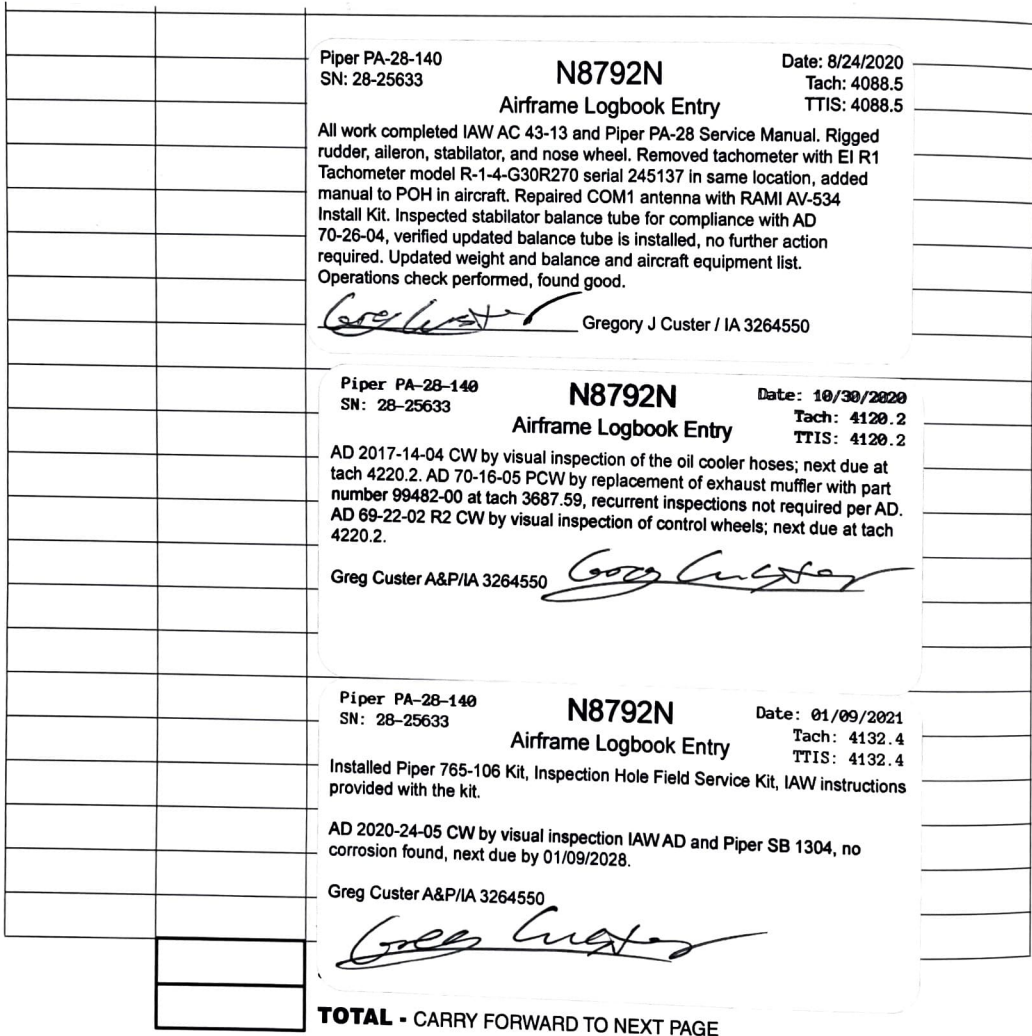 Piper PA-28-140
SN: 28-25633
N8792N
Airframe Logbook Entry
Date: 8/24/2020
Tach: 4088.5
TTIS: 4088.5
All work completed IAW AC 43-13 and Piper PA-28 Service Manual. Rigged
rudder, aileron, stabilator, and nose wheel. Removed tachometer with EI R1
Tachometer model R-1-4-G30R270 serial 245137 in same location, added
manual to POH in aircraft. Repaired COM1 antenna with RAMI AV-534
Install Kit. Inspected stabilator balance tube for compliance with AD
70-26-04, verified updated balance tube is installed, no further action
required. Updated weight and balance and aircraft equipment list.
Operations check performed, found good.
Gregory J Custer / IA 3264550
Piper PA-28-140
SN: 28-25633
N8792N
Airframe Logbook Entry
Date: 10/30/2020
Tach: 4120.2
TTIS: 4120.2
AD 2017-14-04 CW by visual inspection of the oil cooler hoses; next due at
tach 4220.2. AD 70-16-05 PCW by replacement of exhaust muffler with part
number 99482-00 at tach 3687.59, recurrent inspections not required per AD.
AD 69-22-02 R2 CW by visual inspection of control wheels; next due at tach
4220.2.
Greg Custer A&P/IA 3264550 Greg Custer
Piper PA-28-140
SN: 28-25633
N8792N
Airframe Logbook Entry
Date: 01/09/2021
Tach: 4132.4
TTIS: 4132.4
Installed Piper 765-106 Kit, Inspection Hole Field Service Kit, IAW instructions
provided with the kit.
AD 2020-24-05 CW by visual inspection IAW AD and Piper SB 1304, no
corrosion found, next due by 01/09/2028.
Greg Custer A&P/IA 3264550
Greg Custer
TOTAL - CARRY FORWARD TO NEXT PAGE